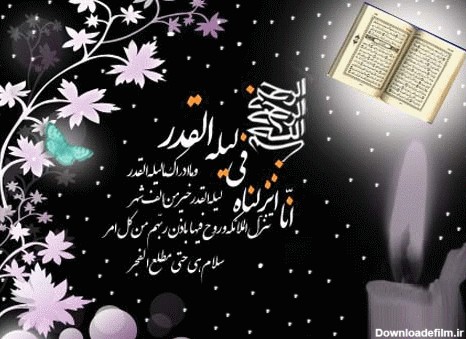 بسم الله الرحمن الرحیم
انّا انزلناه فی لیله القدر
وما ادراک مالیله القدر
لیله القدر خیر من الف شهر
تنزل الملائکه و روح فیها باذن ربهم من کل امر
سلام هی حتی مطلع الفجر
Downloadefilm.ir